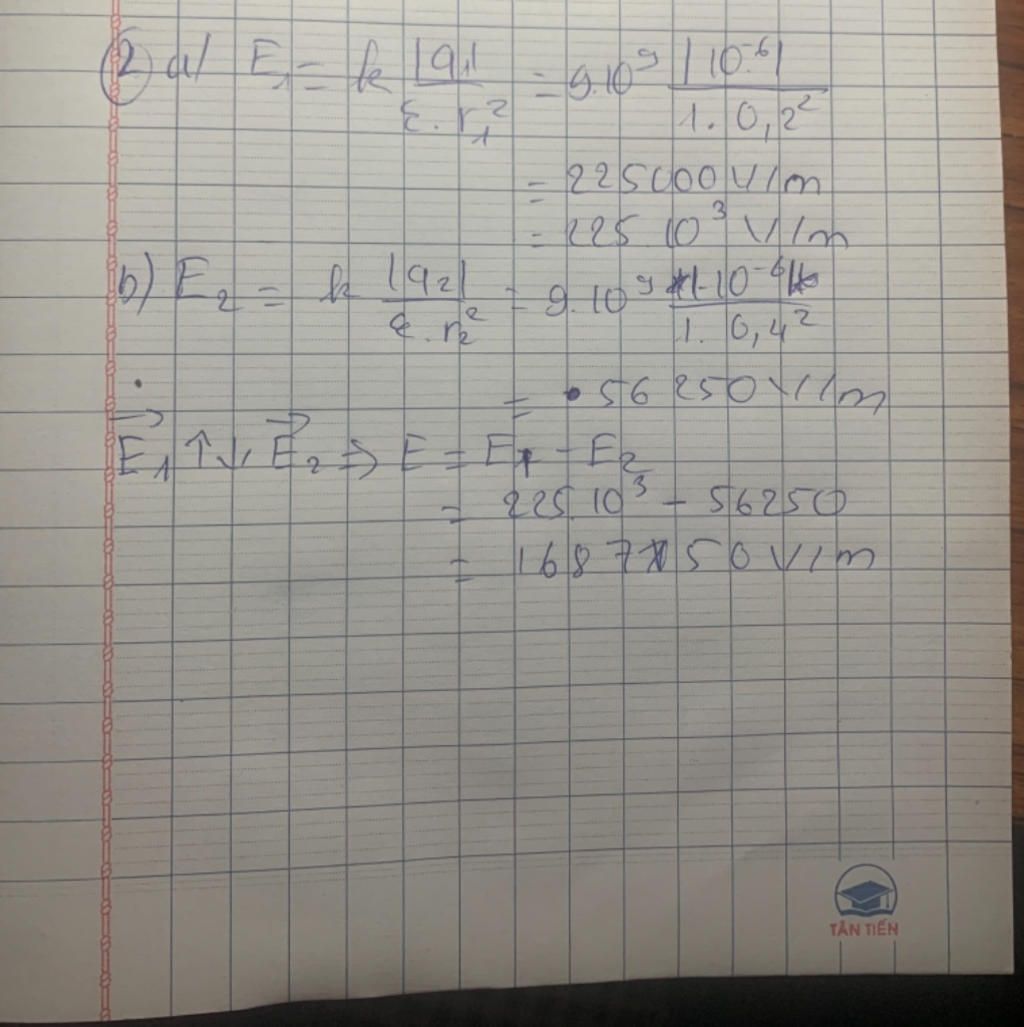 ② a/ E₁ = k |q₁| / ε.r₁² = 9.10⁹ |10⁻⁶| / 1.0,2²
= 225000 V/m
= 225.10³ V/m
b) E₂ = k |q₂| / ε.r₂² = 9.10⁹ |1.10⁻⁶| / 1.0,4²
= 56250 V/m
E₁→ ↑↓ E₂→ ⇒ E = E₁ - E₂
= 225.10³ - 56250
= 168750 V/m
TÂN TIẾN